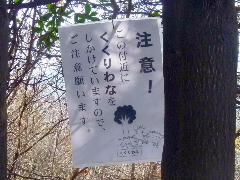 注意！
この付近に
くくりわなを
しかけていますので、
ご注意願います。